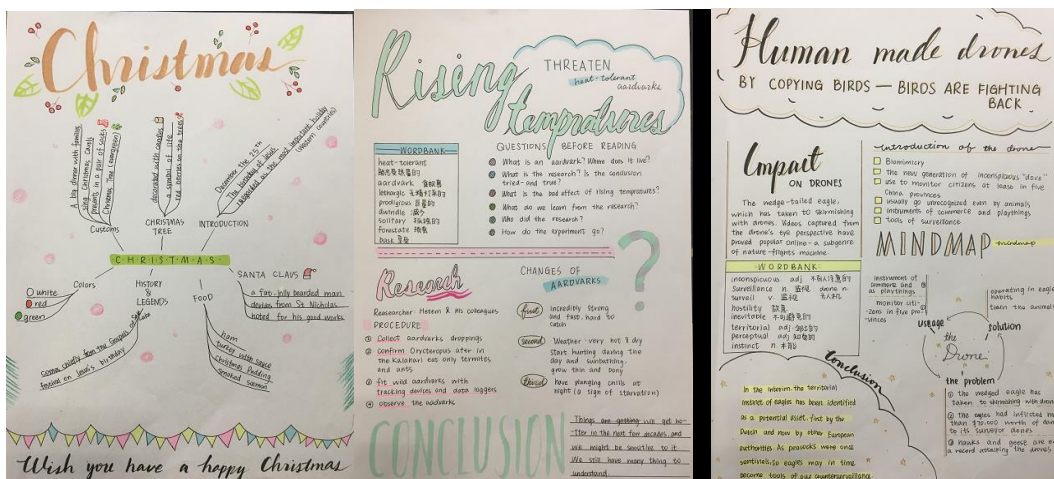 Christmas
A big dinner with families
sing Christmas Carols
presents in a pair of socks
Christmas Tree (evergreen)
Customs
decorated with candles
a symbol of life
red berries on the trees
CHRISTMAS
TREE
December the 25th
The birthday of Jesus
regarded as the most important holiday
(Western countries)
INTRODUCTION
CHRISTMAS
Colors
white
red
green
HISTORY
&
LEGENDS
come chiefly from the Gospel of
Luke
festival on Jesus's birthday
FOOD
ham
turkey with sauce
Christmas Pudding
smoked salmon
SANTA CLAUS
a fat, jolly bearded man
derives from St Nicholas
noted for his good works
Wish you have a happy Christmas
Rising
tempratures
THREATEN
heat-tolerant
aardvarks
WORDBANK
heat-tolerant
aardvark
lethargic
prodigious
dwindle 减少
solitary 孤独的
bask
QUESTIONS BEFORE READING
What is an aardvark? Where does it live?
What is the research? Is the conclusion
tried-and true?
What is the bad effect of rising tempratures?
What do we learn from the research?
Who did the research?
How do the experiment go?
?
Research
Reasearcher: Hetem & his colleagues
PROCEDURE
① Collect aardvarks droppings
② Confirm Orycteropus afer in
the Kalahari eat only termites
and ants
③ fit wild aardvarks with
tracking devices and data loggers
④ observe the aadvarks
CHANGES OF
AARDVARKS
first incredibly strong
and fast, hard to
catch
second Weather-very hot & dry
Start hunting during the
day and sunbathing,
grow thin and bony
third have plunging chills at
night (a sign of starvation)
CONCLUSION
Things are getting will get ho-
tter in the next few decades, and
We might be sensitive to it
We still have many thing to
understand.
Human made drones
BY COPYING BIRDS — BIRDS ARE FIGHTING
BACK
Impact
ON DRONES
The wedge-tailed eagle,
which has taken to skirmishing
with drones. Videos captured from
the drone's eye perspective have
proved popular online-a subgenre
of nature-fights machine.
WORDBANK
inconspicuous adj
Surveillance n 监视 drone n.
surveil v 监视 无人机
hostility 敌意
inevitable 不可避免的
territorial adj
perceptual adj 知觉的
instinct n. 本能
introduction of the drone
Biomimicry
the new generation of inconspicious "dove"
use to monitor citizens at lease in five
China provinces
usually go unrecognized even by animals
instruments of commerce and playthings
tools of surveillance
MINDMAP
mindmap
instrument of
commerce and
as playthings
monitor citi-
zens in five pro-
vinces
usuage
operating in eagle
habits
solution
the
Drone
the problem
① the wedged eagle has
taken to skirmishing with dron
② the eagles had inflicted m
than $70,000 worth of dam
to its surveyor drones
③ hawks and geese are on
a record attacking the drones
Conclusion
In the interim, the territorial
instinct of eagles has been identified
as a potential asset, first by the
Dutch and now by other European
authorities. As peacocks were once
sentinels, so eagles may in time
become tools of our countersurveillance.